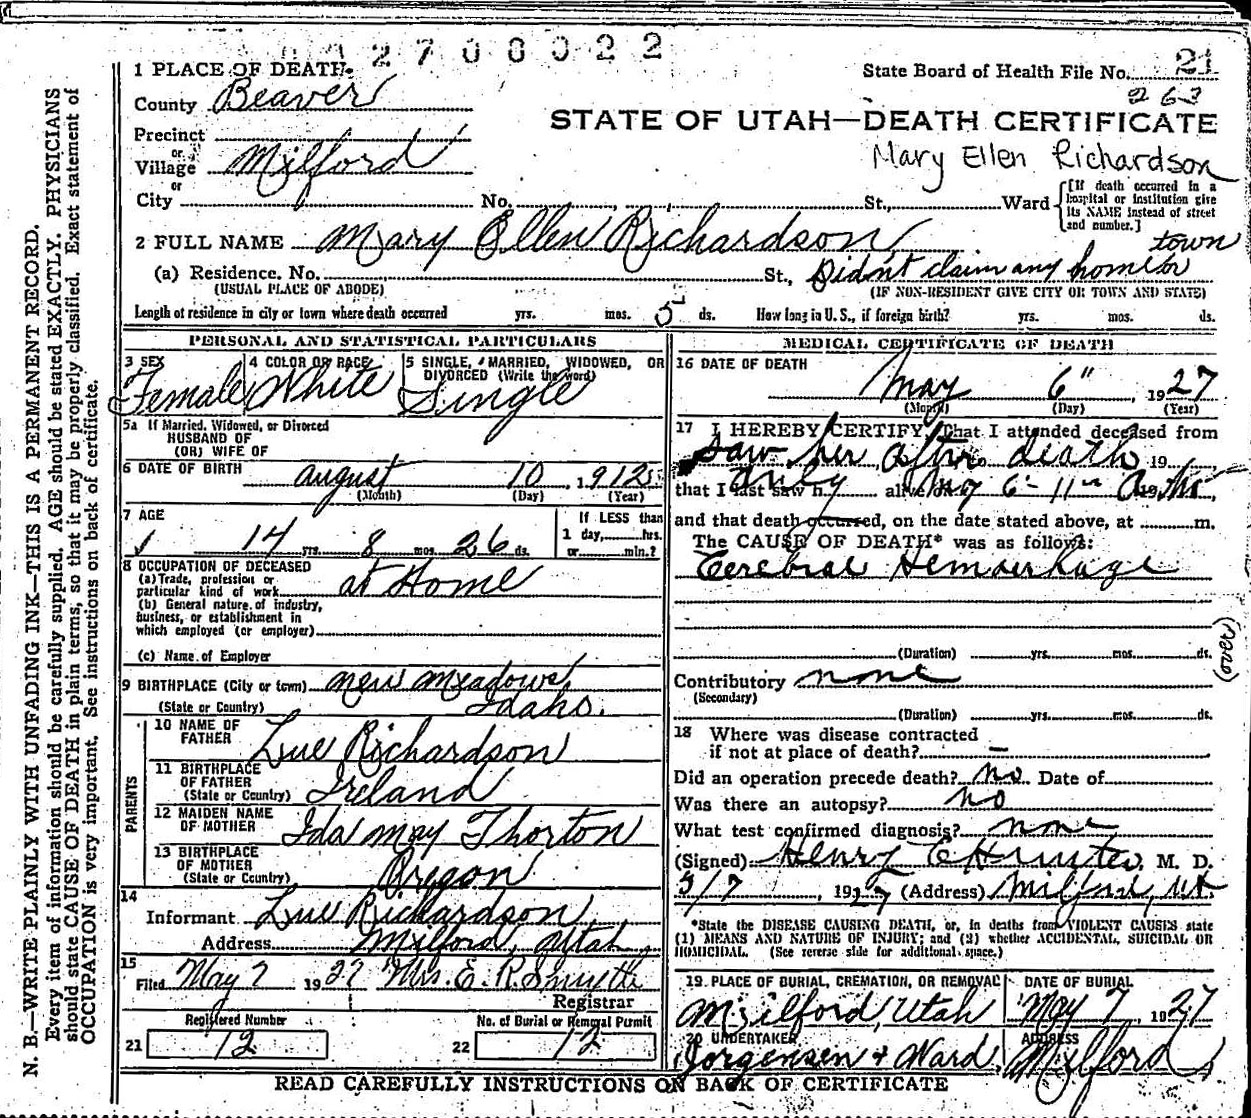 2700022
1 PLACE OF DEATH. State Board of Health File No. 21
County Beaver 263
STATE OF UTAH—DEATH CERTIFICATE
Precinct
or
Village Milford
Mary Ellen Richardson
or
City No. St., Ward [If death occurred in a hospital or institution give its NAME instead of street and number.]
2 FULL NAME Mary Ellen Richardson
(a) Residence. No. St., Didn't claim any home or town
(USUAL PLACE OF ABODE) (IF NON-RESIDENT GIVE CITY OR TOWN AND STATE)
Length of residence in city or town where death occurred yrs. mos. 5 ds. How long in U. S., if foreign birth? yrs. mos. ds.
PERSONAL AND STATISTICAL PARTICULARS
3 SEX 4 COLOR OR RACE 5 SINGLE, MARRIED, WIDOWED, OR DIVORCED (Write the word)
Female White Single
5a If Married, Widowed, or Divorced
HUSBAND OF
(OR) WIFE OF
6 DATE OF BIRTH August 10, 1912
(Month) (Day) (Year)
7 AGE If LESS than
14 yrs. 8 mos. 26 ds. 1 day, hrs.
or min.?
8 OCCUPATION OF DECEASED
(a) Trade, profession or
particular kind of work at Home
(b) General nature of industry,
business, or establishment in
which employed (or employer)
(c) Name of Employer
9 BIRTHPLACE (City or town) New Meadows,
(State or Country) Idaho.
PARENTS
10 NAME OF
FATHER Lue Richardson
11 BIRTHPLACE
OF FATHER
(State or Country) Ireland
12 MAIDEN NAME
OF MOTHER Ida May Thorton
13 BIRTHPLACE
OF MOTHER
(State or Country) Oregon
14
Informant Lue Richardson
Address Milford, Utah
15
Filed May 7 1927 Mrs. E. R. Smyth
Registrar
Registered Number No. of Burial or Removal Permit
21 12 22 12
MEDICAL CERTIFICATE OF DEATH
16 DATE OF DEATH
May 6", 1927
(Month) (Day) (Year)
17 I HEREBY CERTIFY, That I attended deceased from
saw her after death 19
that I last saw h alive on 19
only May 6-11
and that death occurred, on the date stated above, at m.
The CAUSE OF DEATH* was as follows:
Cerebral Hemorrhage
(over)
(Duration) yrs. mos. ds.
Contributory none
(Secondary)
(Duration) yrs. mos. ds.
18 Where was disease contracted
if not at place of death? —
Did an operation precede death? no Date of
Was there an autopsy? no
What test confirmed diagnosis? none
(Signed) Henry E, M. D.
5/7, 1927 (Address) Milford, Ut.
*State the DISEASE CAUSING DEATH, or, in deaths from VIOLENT CAUSES state
(1) MEANS AND NATURE OF INJURY; and (2) whether ACCIDENTAL, SUICIDAL OR
HOMICIDAL. (See reverse side for additional space.)
19 PLACE OF BURIAL, CREMATION, OR REMOVAL DATE OF BURIAL
Milford, Utah May 7, 1927
20 UNDERTAKER ADDRESS
Jorgensen & Ward, Milford
READ CAREFULLY INSTRUCTIONS ON BACK OF CERTIFICATE
N. B.—WRITE PLAINLY WITH UNFADING INK—THIS IS A PERMANENT RECORD.
Every item of information should be carefully supplied. AGE should be stated EXACTLY. PHYSICIANS
should state CAUSE OF DEATH in plain terms, so that it may be properly classified. Exact statement of
OCCUPATION is very important. See instructions on back of certificate.